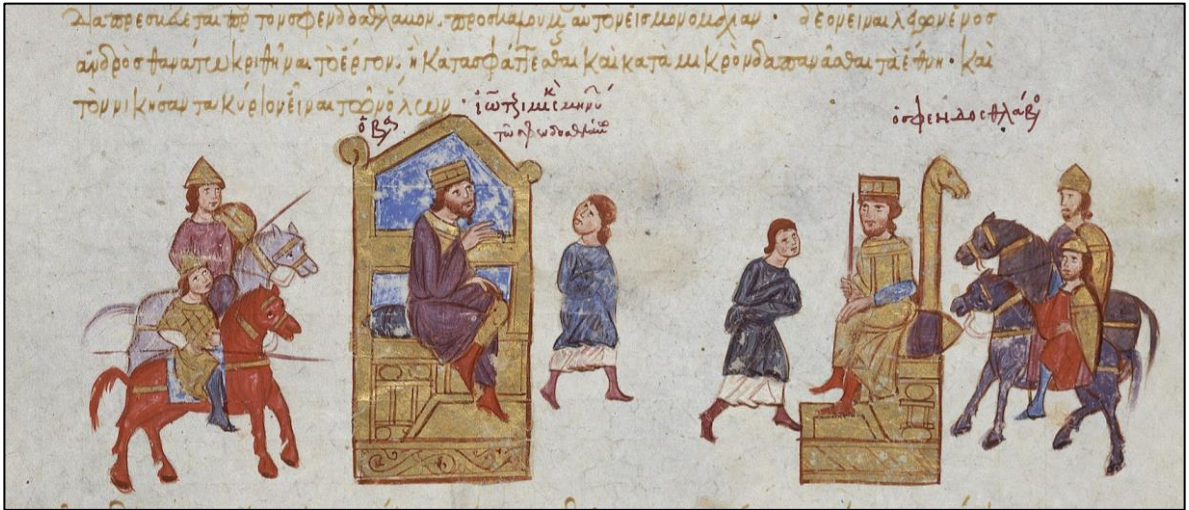 διαπρεσβεύεται πρὸς τὸν σφενδοσθλάβον. προσκαλούμενος αὐτὸν εἰς μονομαχίαν· δέον εἶναι λέγων ἑνὸς
ἀνδρὸς θανάτω κριθῆναι τὸ ἔργον, ἢ κατασφάττεσθαι καὶ κατὰ μικρὸν δαπανᾶσθαι τὰ ἔθνη· καὶ
τὸν νικήσαντα κύριον εἶναι τῶν ὅλων·
ὁ βασ ἰω τζιμισκ μηνύ
ὁ σφενδοσθλάβο